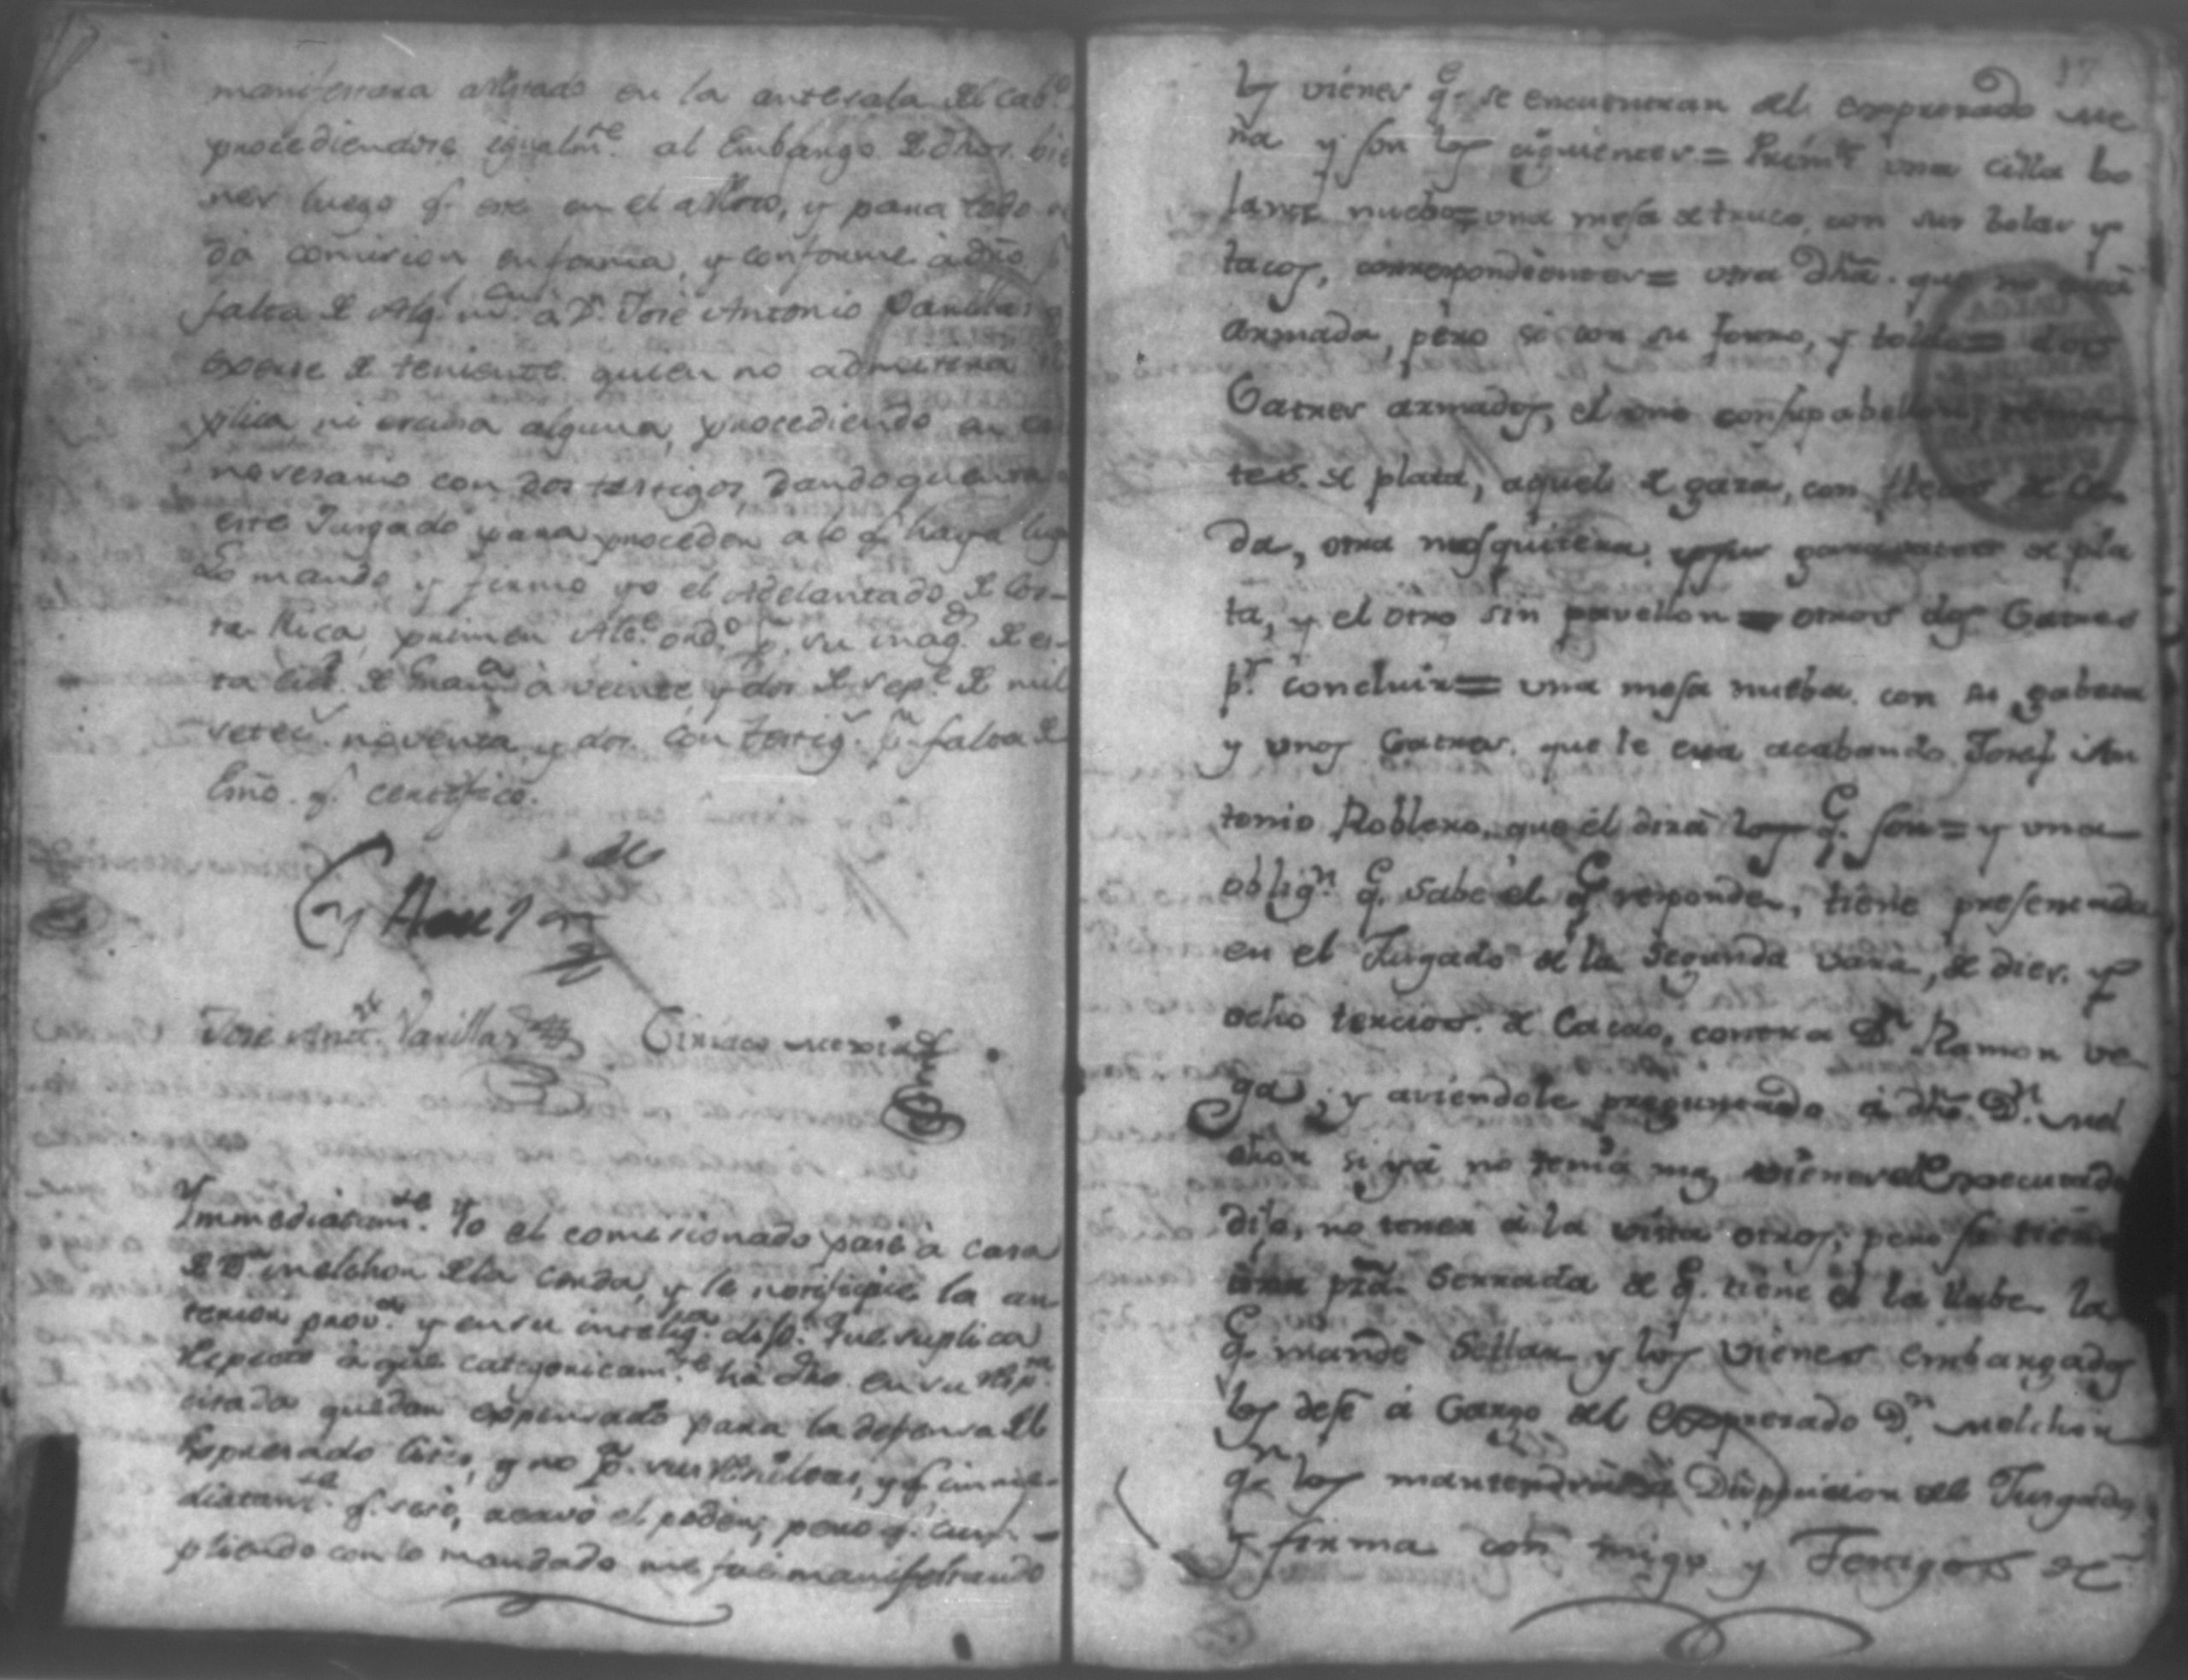 manifestara arrestado en la antesala del cab.º
procediendose igualm.te al Embargo de dhos. bie
nes luego q.e esé en el arresto, y para todo se
dá comision en forma, y conforme á dro p.r
falta de Alg.l m.or a D.n José Antonio Vanillas
teniente quien no admitirá
plica ni escusa alguna, procediendo en ca
nesesario con dos testigos, dando quenta a
este Jusgado para proceder a lo q.e haya lug
Lo mando y firmo yo el Adelantado de Cos-
ta Rica, primer Alc.e ord.º p.r su mag.d de es-
ta Ciu.d de Gran.a á veinte, y dos de Sep.e de mil
setec.s noventa, y dos. con testig.s p.r falta de
Esno. q.e certifico.
José Ant.º Vanillas Ciriaco Mexia
Immediatam.te Yo el comisionado pasé á casa
de D.n Melchor de la Cerda, y le notifiqué la an
terior prov.a y en su intelig.a dijo: Fue suplica
respecto á que categoricam.te há dho. en su resp.ta
citada quedar expensado para la defensa del
Expresado y no p.r sus y q.e inme-
diatam.te q.e sesó, acavó el poder; pero q.e cum-
pliendo con lo mandado me fue manifestando
17
los vienes q.e se encuentran del expresado Me
na y son los siguientes = Prim.te una cilla bo
lante nueba = una mesa de truco, con sus bolas y
tacos, correspondientes = otra dha. que no está
armada, pero si con su forro, y = dos
Catres armados, el uno con su pabellon,
tes. de plata, aquel de gasa, con flecos de Ce
da, otra mosquitera, y sus de pla
ta, y el otro sin pavellon = otros dos Catres
p.r concluir = una mesa nueba con su gabeta
y unos Catres que le está acabando Josef An
tonio Roblero, que él dirá los q.e son = y una
oblig.n q.e sabe el q.e responde, tiene presentada
en el Jusgado de la segunda vara, de dies y
ocho tercios de Cacao, contra D.n Ramon Ve
ga; y aviendole preguntado á dho. D.n Mel
chor si yá no tenia mas vienes del Executado
dijo, no tener á la vista otros; pero si tiene
una serrada de q.e tiene él la llabe la
q.e mandé sellar y los Vienes embargados
los dejé á Cargo del Expresado D.n Melchor
q.n los mantendrá á Disposicion del Jusgado,
y firma con migo y Testigos de